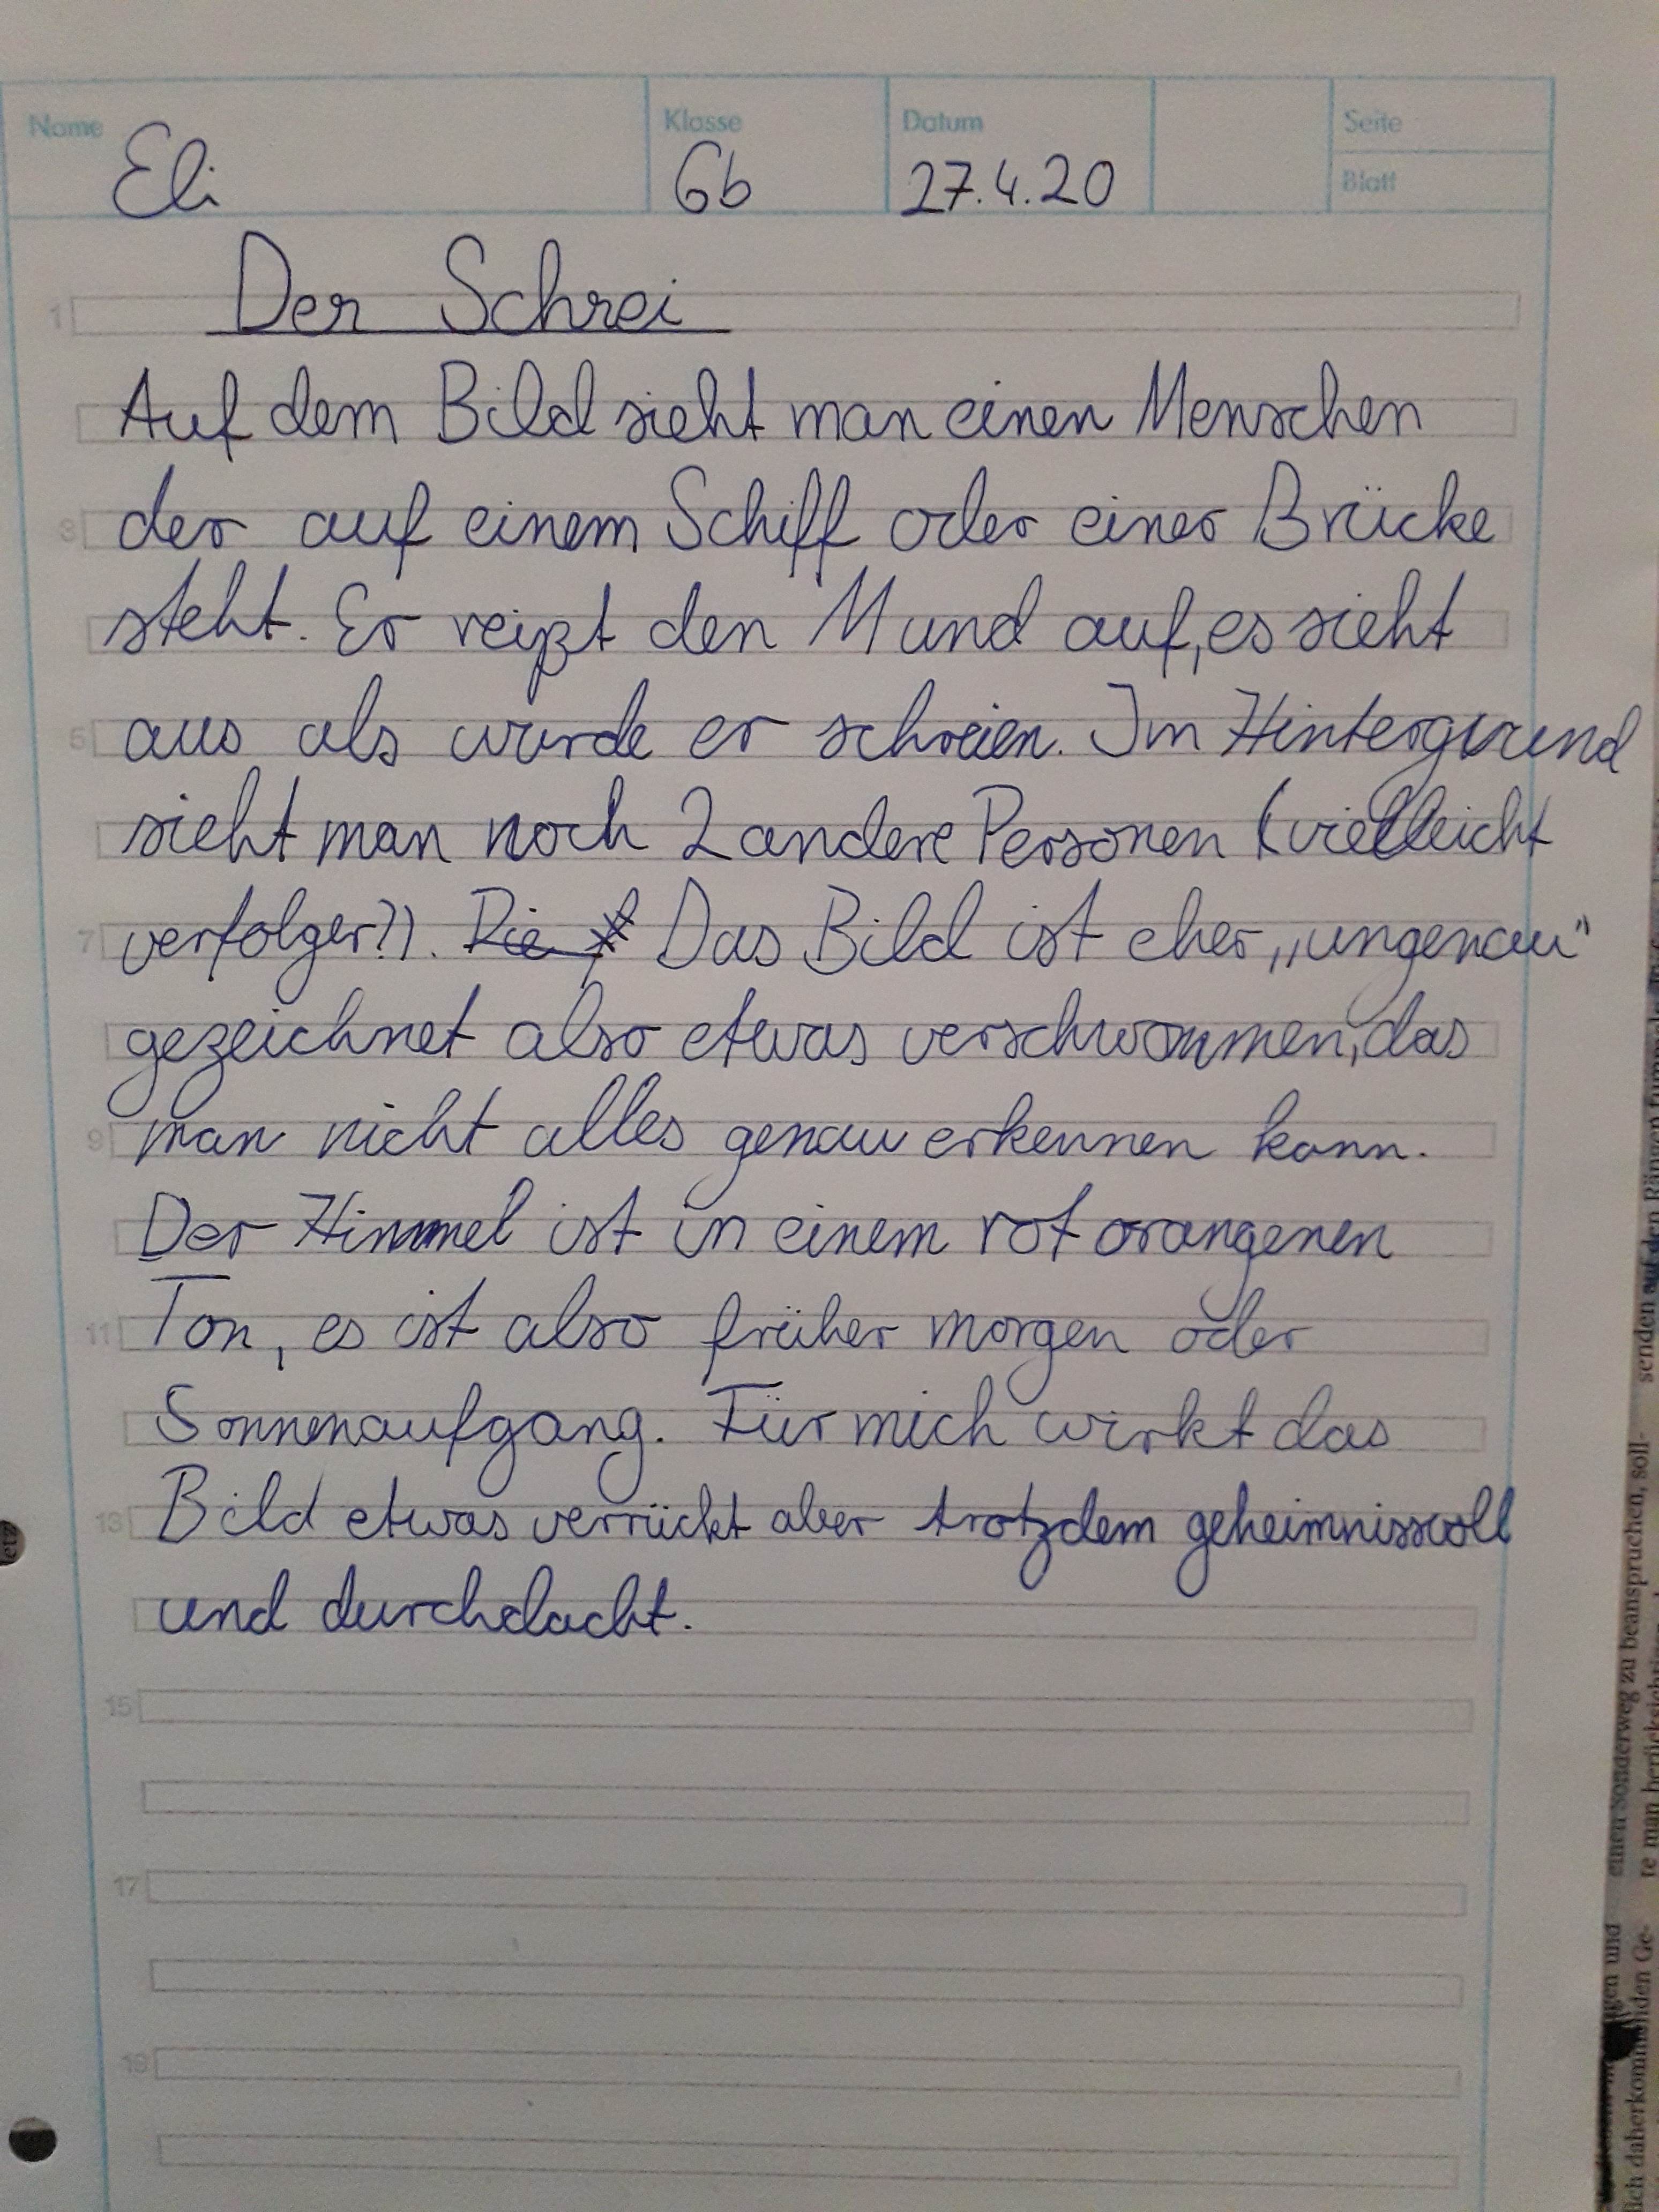 Name Eli Klasse 6b Datum 27.4.20 Seite
Blatt
1 Der Schrei
Auf dem Bild sieht man einen Menschen
3 der auf einem Schiff oder einer Brücke
steht. Er reißt den Mund auf, es sieht
5 aus als wurde er schreien. Im Hintergrund
sieht man noch 2 andere Personen (vielleicht
7 verfolger?). Die Das Bild ist eher „ungenau“
gezeichnet also etwas verschwommen, das
9 man nicht alles genau erkennen kann.
Der Himmel ist in einem rot orangenen
11 Ton, es ist also früher morgen oder
Sonnenaufgang. Für mich wirkt das
13 Bild etwas verrückt aber trotzdem geheimnissvoll
und durchdacht.
15
17
19
senden auf den Rängen
einen Sonderweg zu beanspruchen, soll-
gen und
lich daherkommenden Ge-